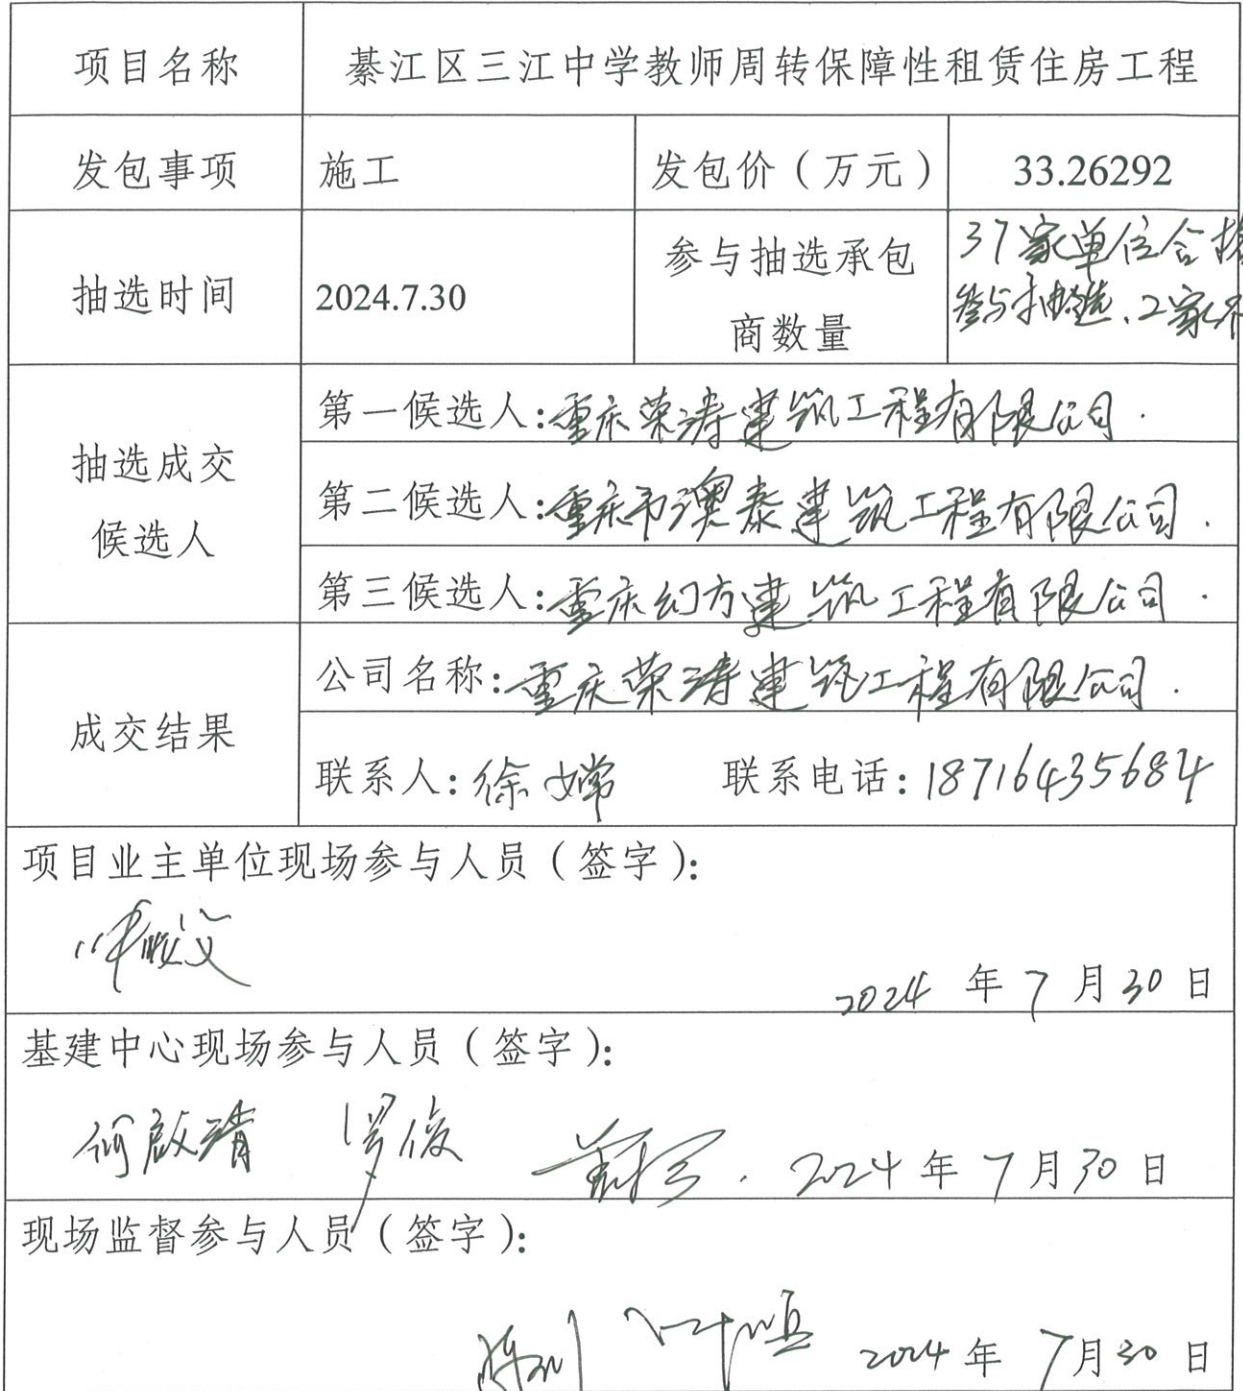 项目名称 綦江区三江中学教师周转保障性租赁住房工程
发包事项 施工 发包价(万元) 33.26292
抽选时间 2024.7.30 参与抽选承包商数量 37家单位合格
参与抽选、2家不
抽选成交候选人
第一候选人:重庆荣涛建筑工程有限公司.
第二候选人:重庆市澳泰建筑工程有限公司.
第三候选人:重庆幻方建筑工程有限公司.
成交结果
公司名称:重庆荣涛建筑工程有限公司.
联系人:徐嫦 联系电话:18716435684
项目业主单位现场参与人员(签字):
2024年7月30日
基建中心现场参与人员(签字):
何啟清 罗俊 2024年7月30日
现场监督参与人员(签字):
2024年7月30日